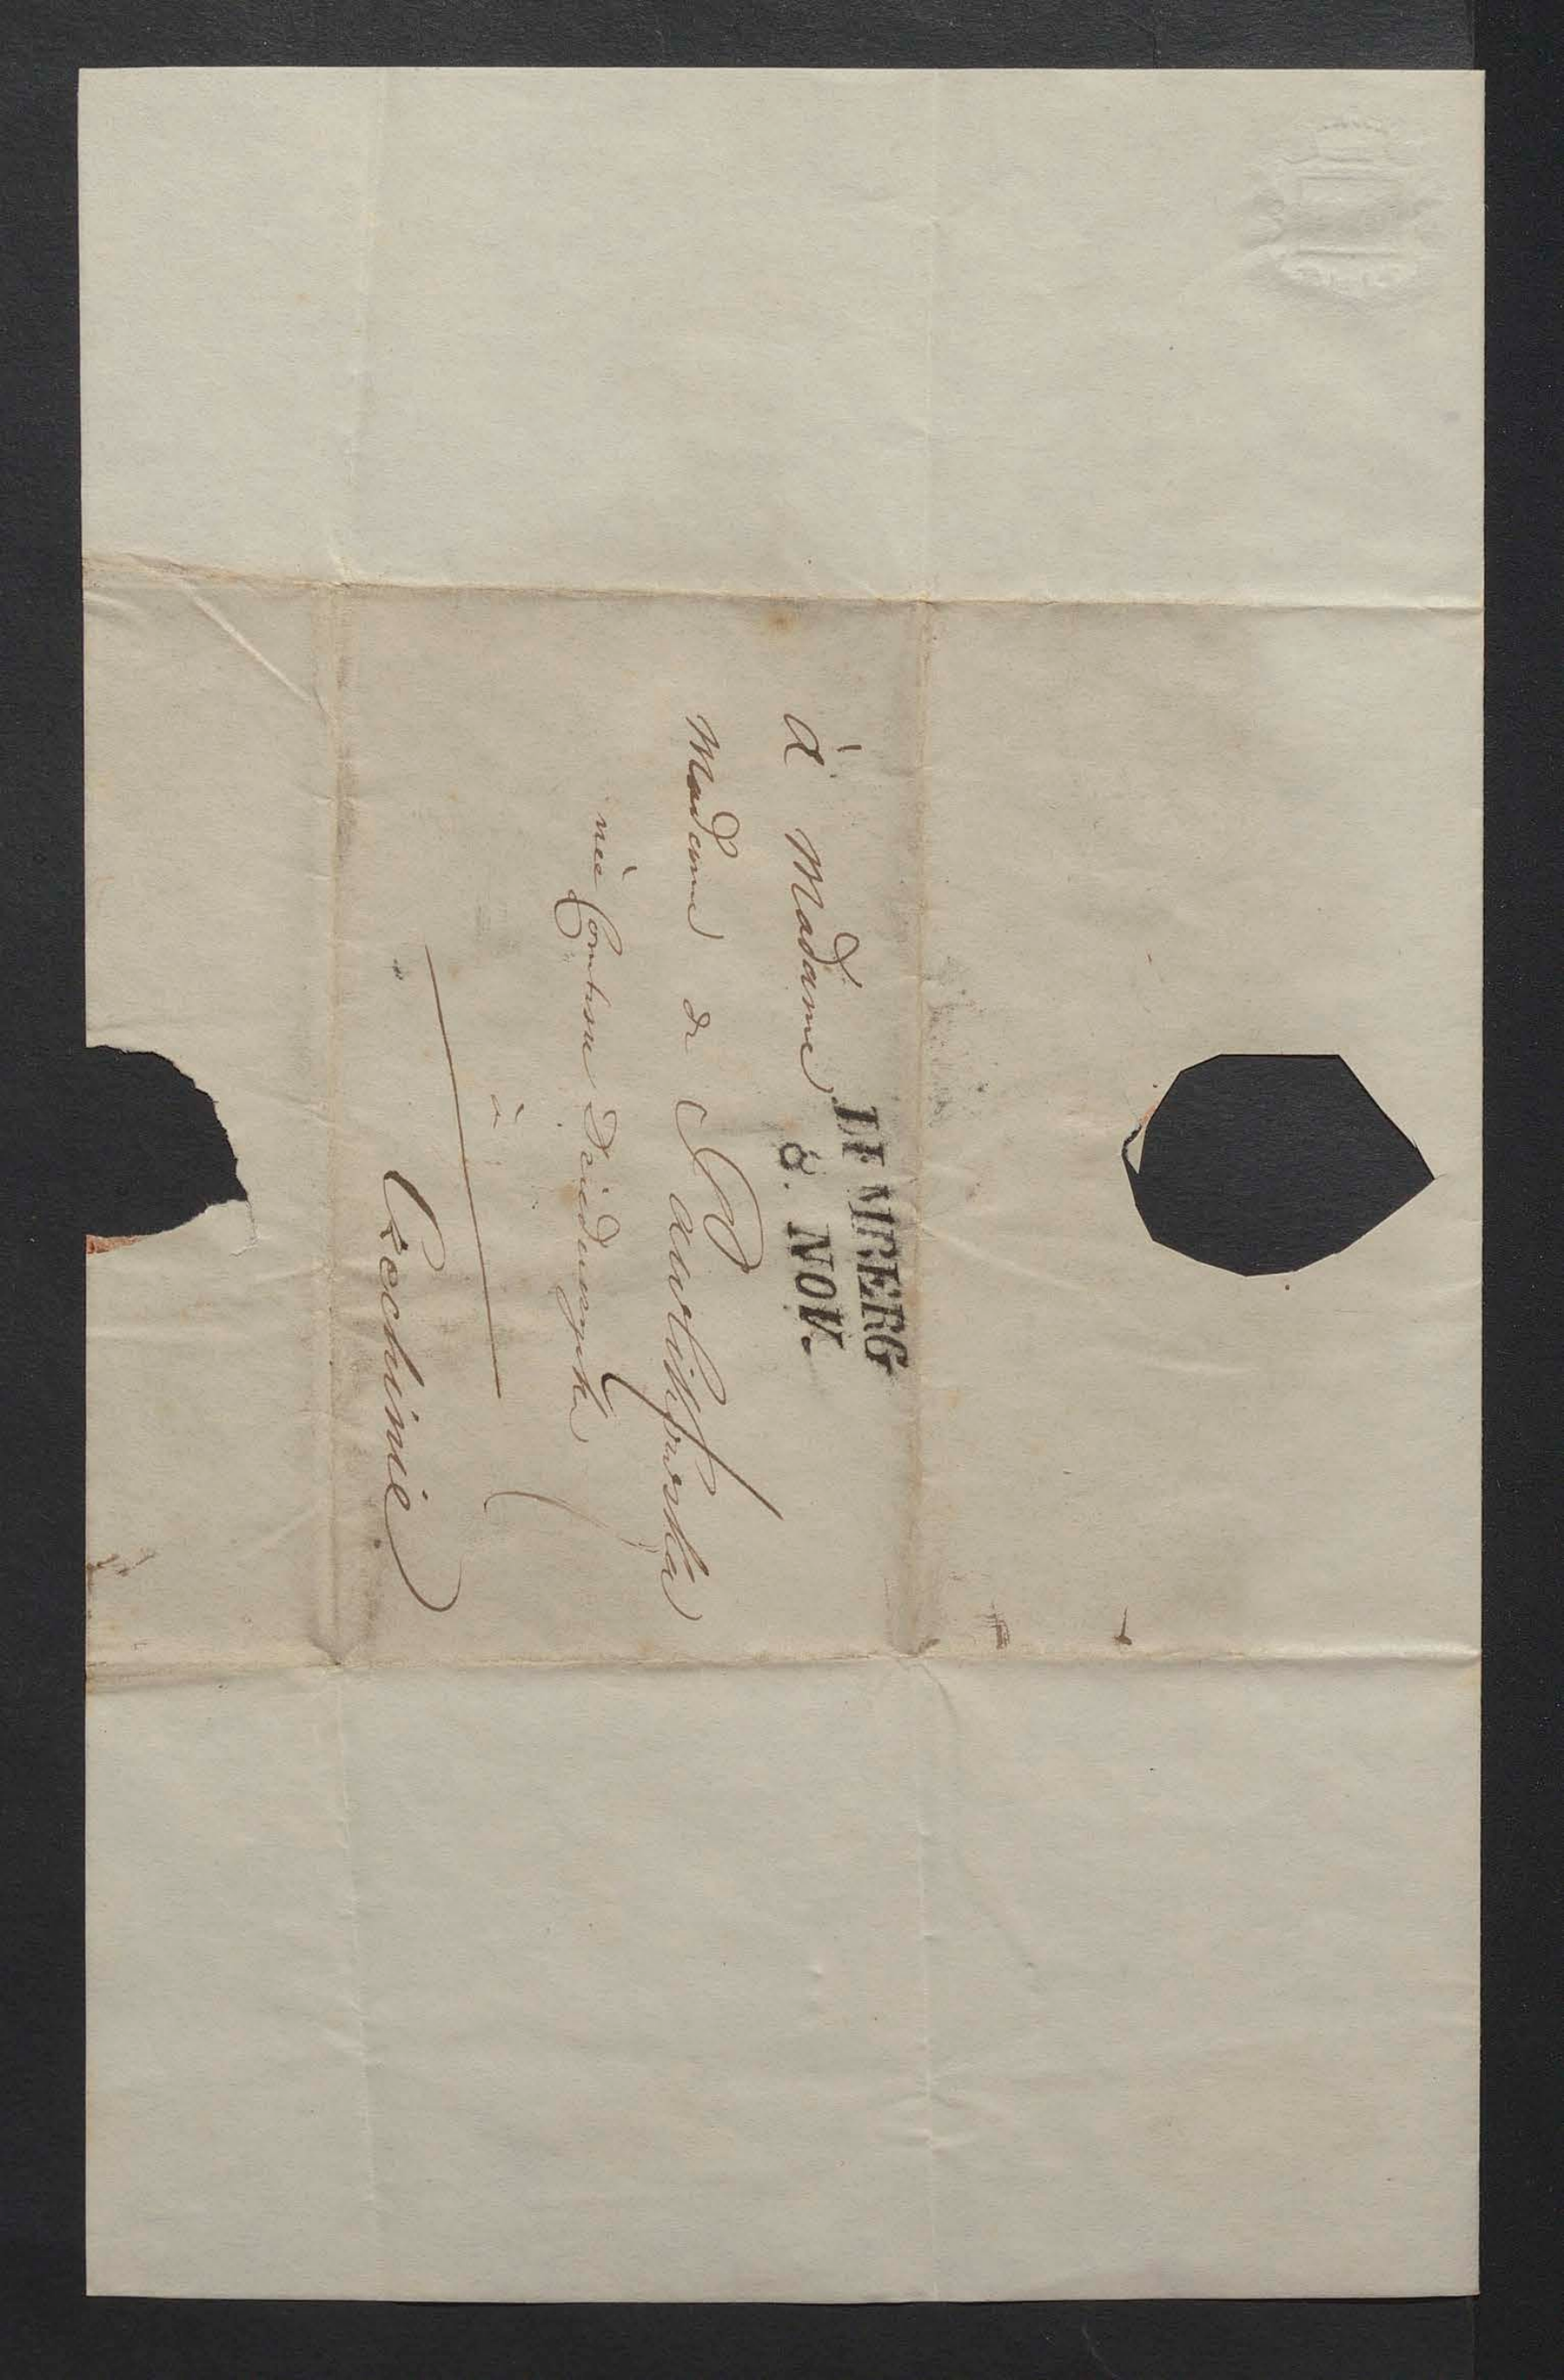 LEMBERG
8. NOV.
à Madame
Madame de Pawlikowska
née Comtesse Dzieduszycka
à
Czechinie